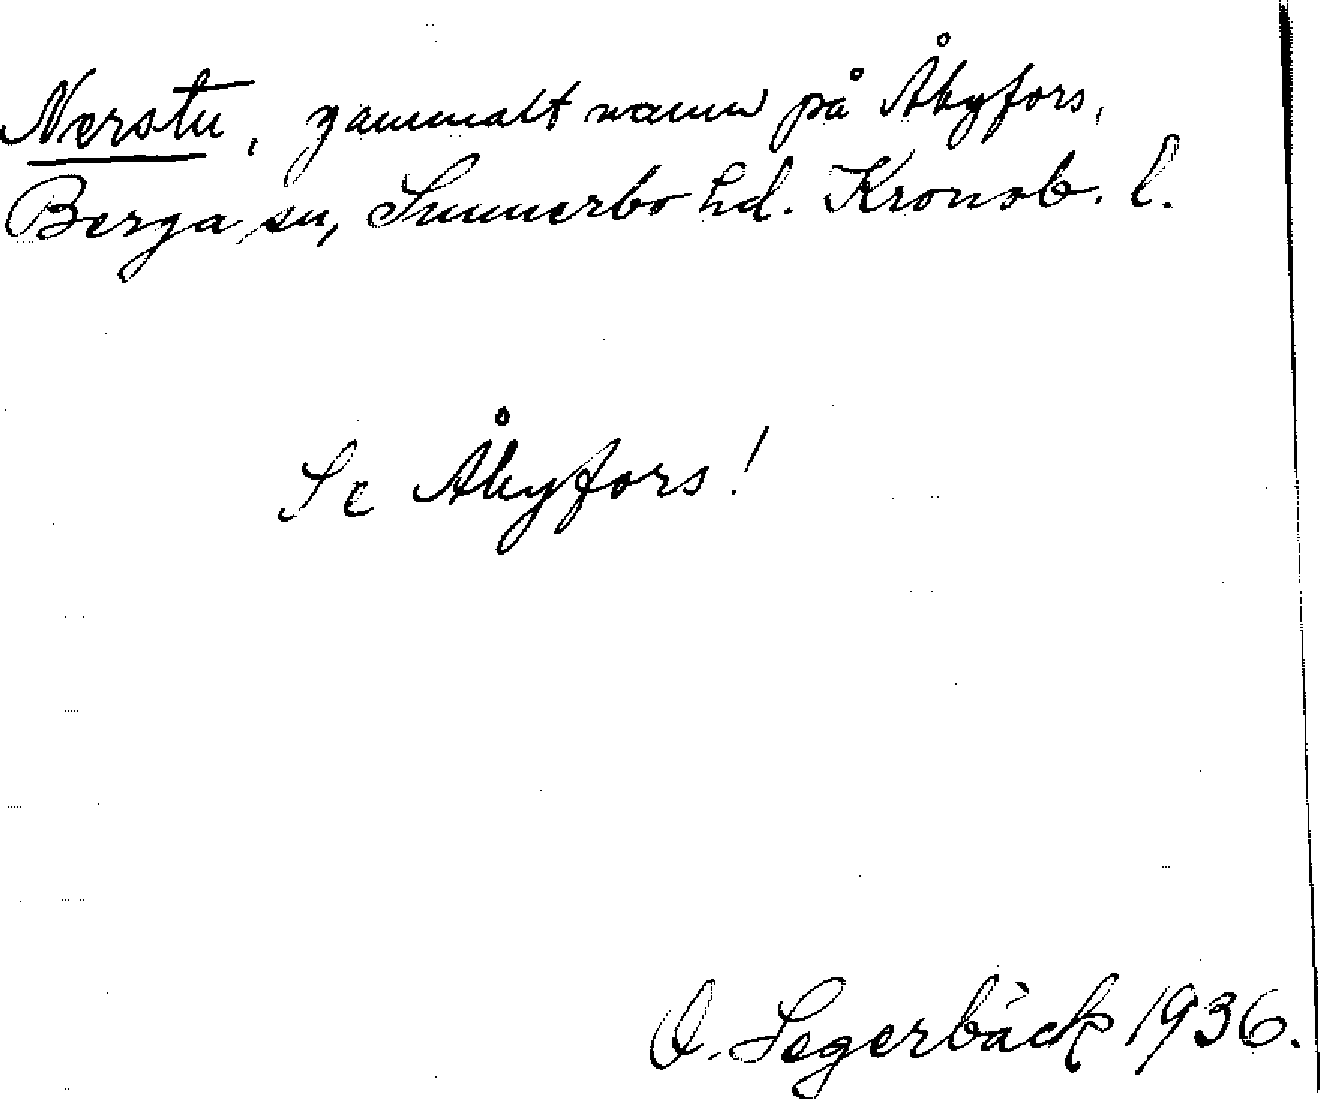 Nerstu, gammalt namn på Åbyfors,
Berga sn, Sunnerbo hd. Kronob. l.
Se Åbyfors!
O. Segerbäck 1936.